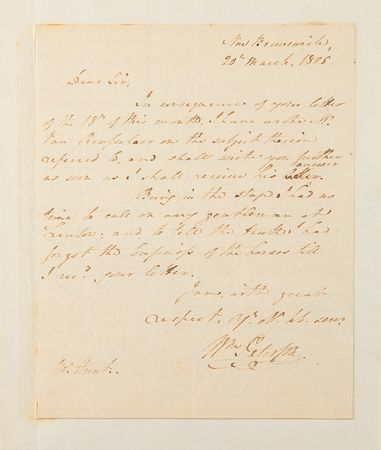 New Brunswick,
20th March, 1805.
Dear Sir,
In consequence of your letter
of the 18th of this month, I have wrote Mr.
Van Rensselaer on the subject therein
referred to, and shall write you further
as soon as I shall receive his answer
Being in the stage I had no
time to call on any gentleman at
Trenton; and to tell the truth I had
forgot the business of the horses till
I recd. your letter.
I am, with great
respect, Yr. Ob. st. servt.
Wm. Paterson
Mr. Hunt.